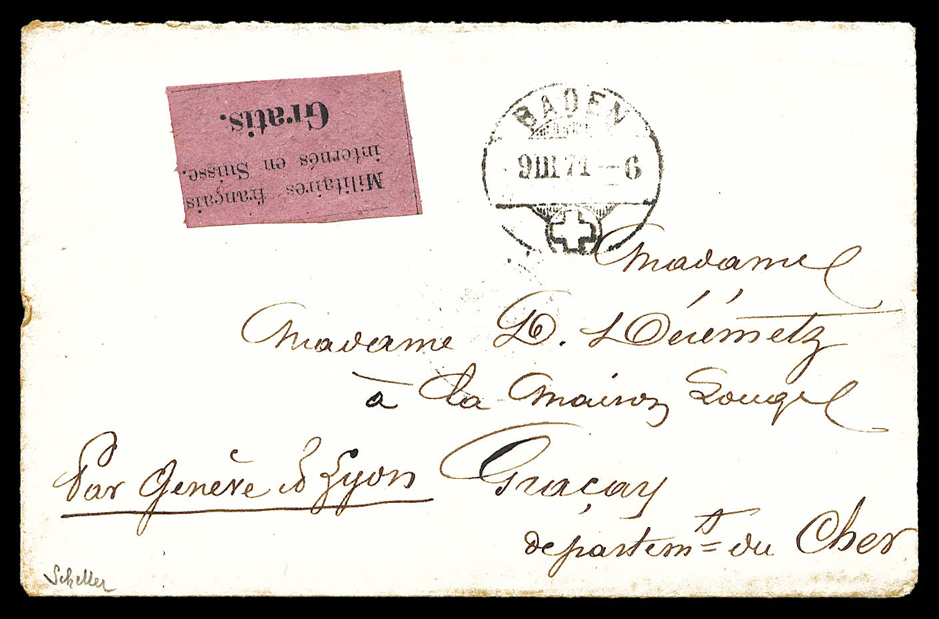 Militaires français
internés en Suisse.
Gratis.
BADEN
9 III 71 — 6
Madame
Madame D.
à la Maison Rouge
Par Genève & Lyon Graçay
départemt= du Cher
Scheller